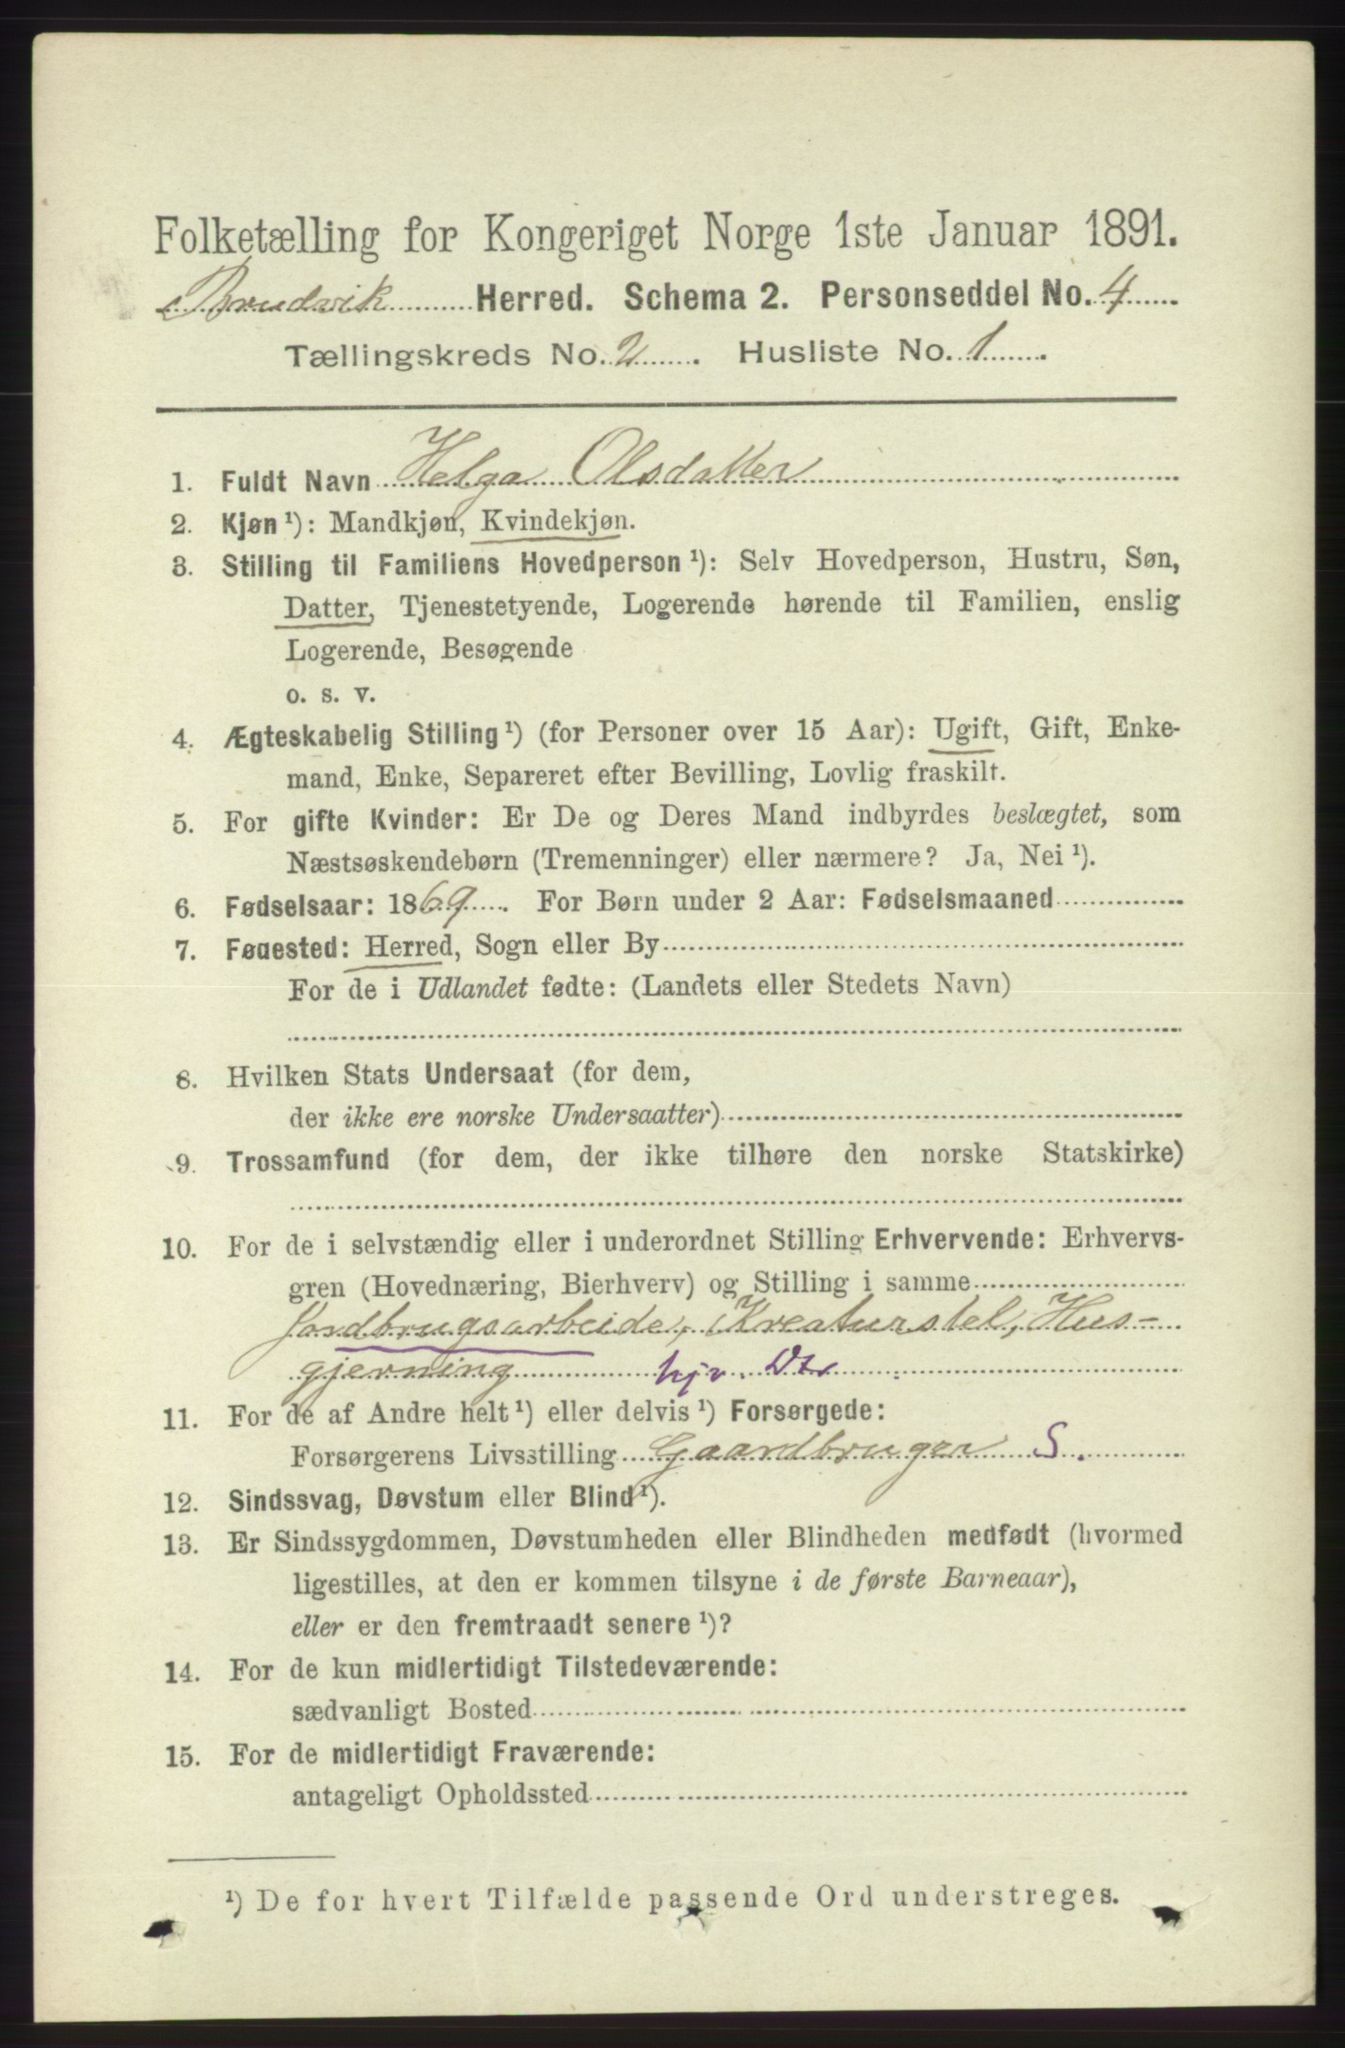 Folketælling for Kongeriget Norge 1ste Januar 1891.
Brudvik Herred. Schema 2. Personseddel No. 4
Tællingskreds No. 2. Husliste No. 1.
1. Fuldt Navn Helga Olsdatter
2. Kjøn ¹): Mandkjøn, Kvindekjøn.
3. Stilling til Familiens Hovedperson ¹): Selv Hovedperson, Hustru, Søn,
Datter, Tjenestetyende, Logerende hørende til Familien, enslig
Logerende, Besøgende
o. s. v.
4. Ægteskabelig Stilling ¹) (for Personer over 15 Aar): Ugift, Gift, Enke-
mand, Enke, Separeret efter Bevilling, Lovlig fraskilt.
5. For gifte Kvinder: Er De og Deres Mand indbyrdes beslægtet, som
Næstsøskendebørn (Tremenninger) eller nærmere? Ja, Nei ¹).
6. Fødselsaar: 1869. For Børn under 2 Aar: Fødselsmaaned
7. Føuested: Herred, Sogn eller By
For de i Udlandet fødte: (Landets eller Stedets Navn)
8. Hvilken Stats Undersaat (for dem,
der ikke ere norske Undersaatter)
9. Trossamfund (for dem, der ikke tilhøre den norske Statskirke)
10. For de i selvstændig eller i underordnet Stilling Erhvervende: Erhvervs-
gren (Hovednæring, Bierhverv) og Stilling i samme
Jordbrugsarbeide, Kreaturstel, Hus-
gjerning hjv. Dtr
11. For de af Andre helt ¹) eller delvis ¹) Forsørgede:
Forsørgerens Livsstilling Gaardbruger S.
12. Sindssvag, Døvstum eller Blind ¹).
13. Er Sindssygdommen, Døvstumheden eller Blindheden medfødt (hvormed
ligestilles, at den er kommen tilsyne i de første Barneaar),
eller er den fremtraadt senere ¹)?
14. For de kun midlertidigt Tilstedeværende:
sædvanligt Bosted
15. For de midlertidigt Fraværende:
antageligt Opholdssted
¹) De for hvert Tilfælde passende Ord understreges.